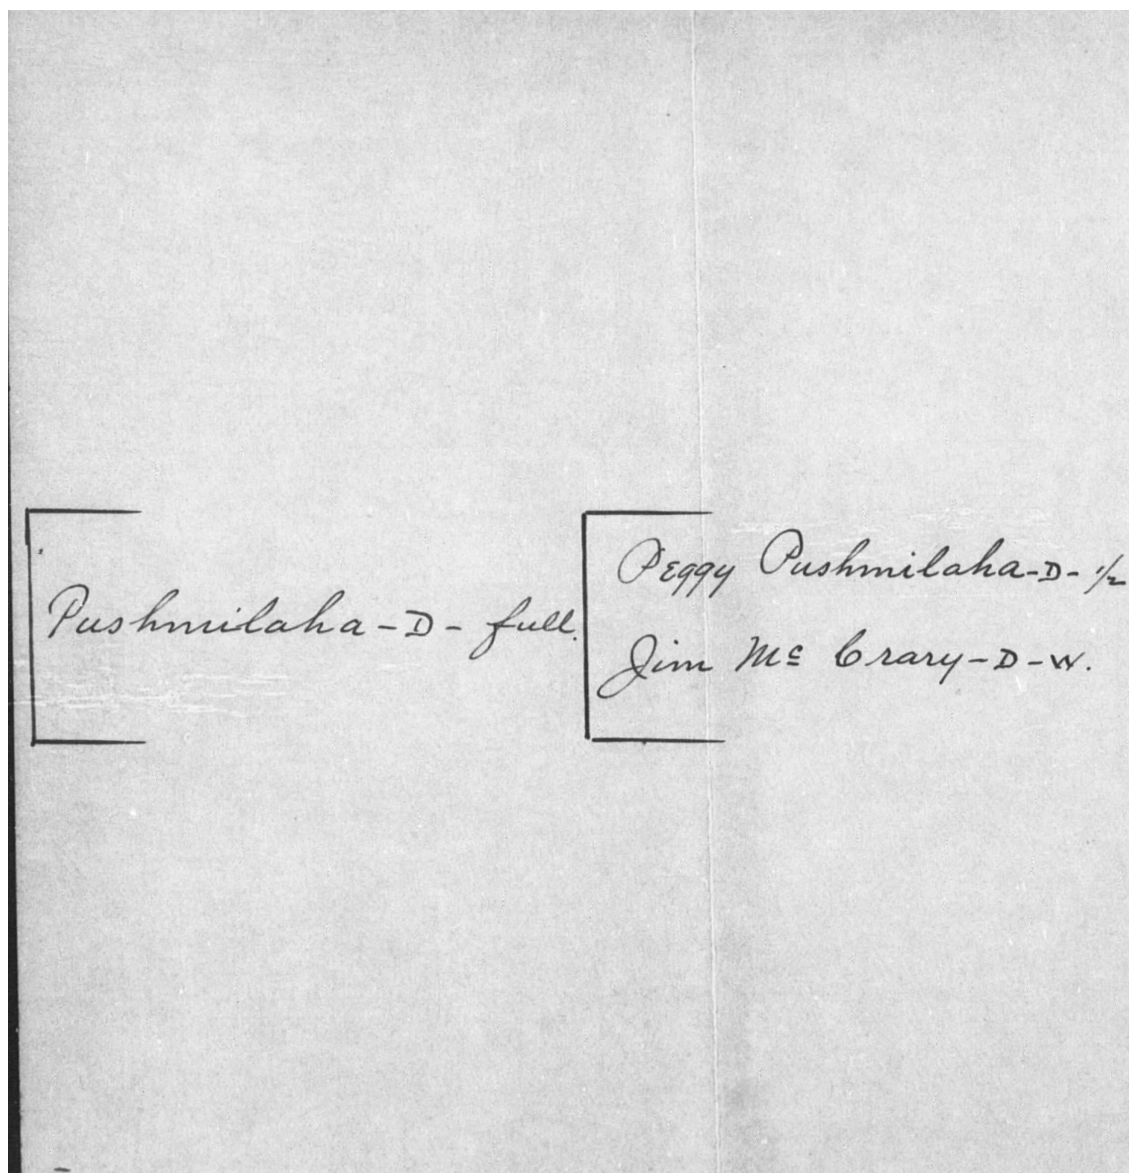 Pushmilaha - D - full.
Peggy Pushmilaha - D - 1/2
Jim Mc Crary - D - W.